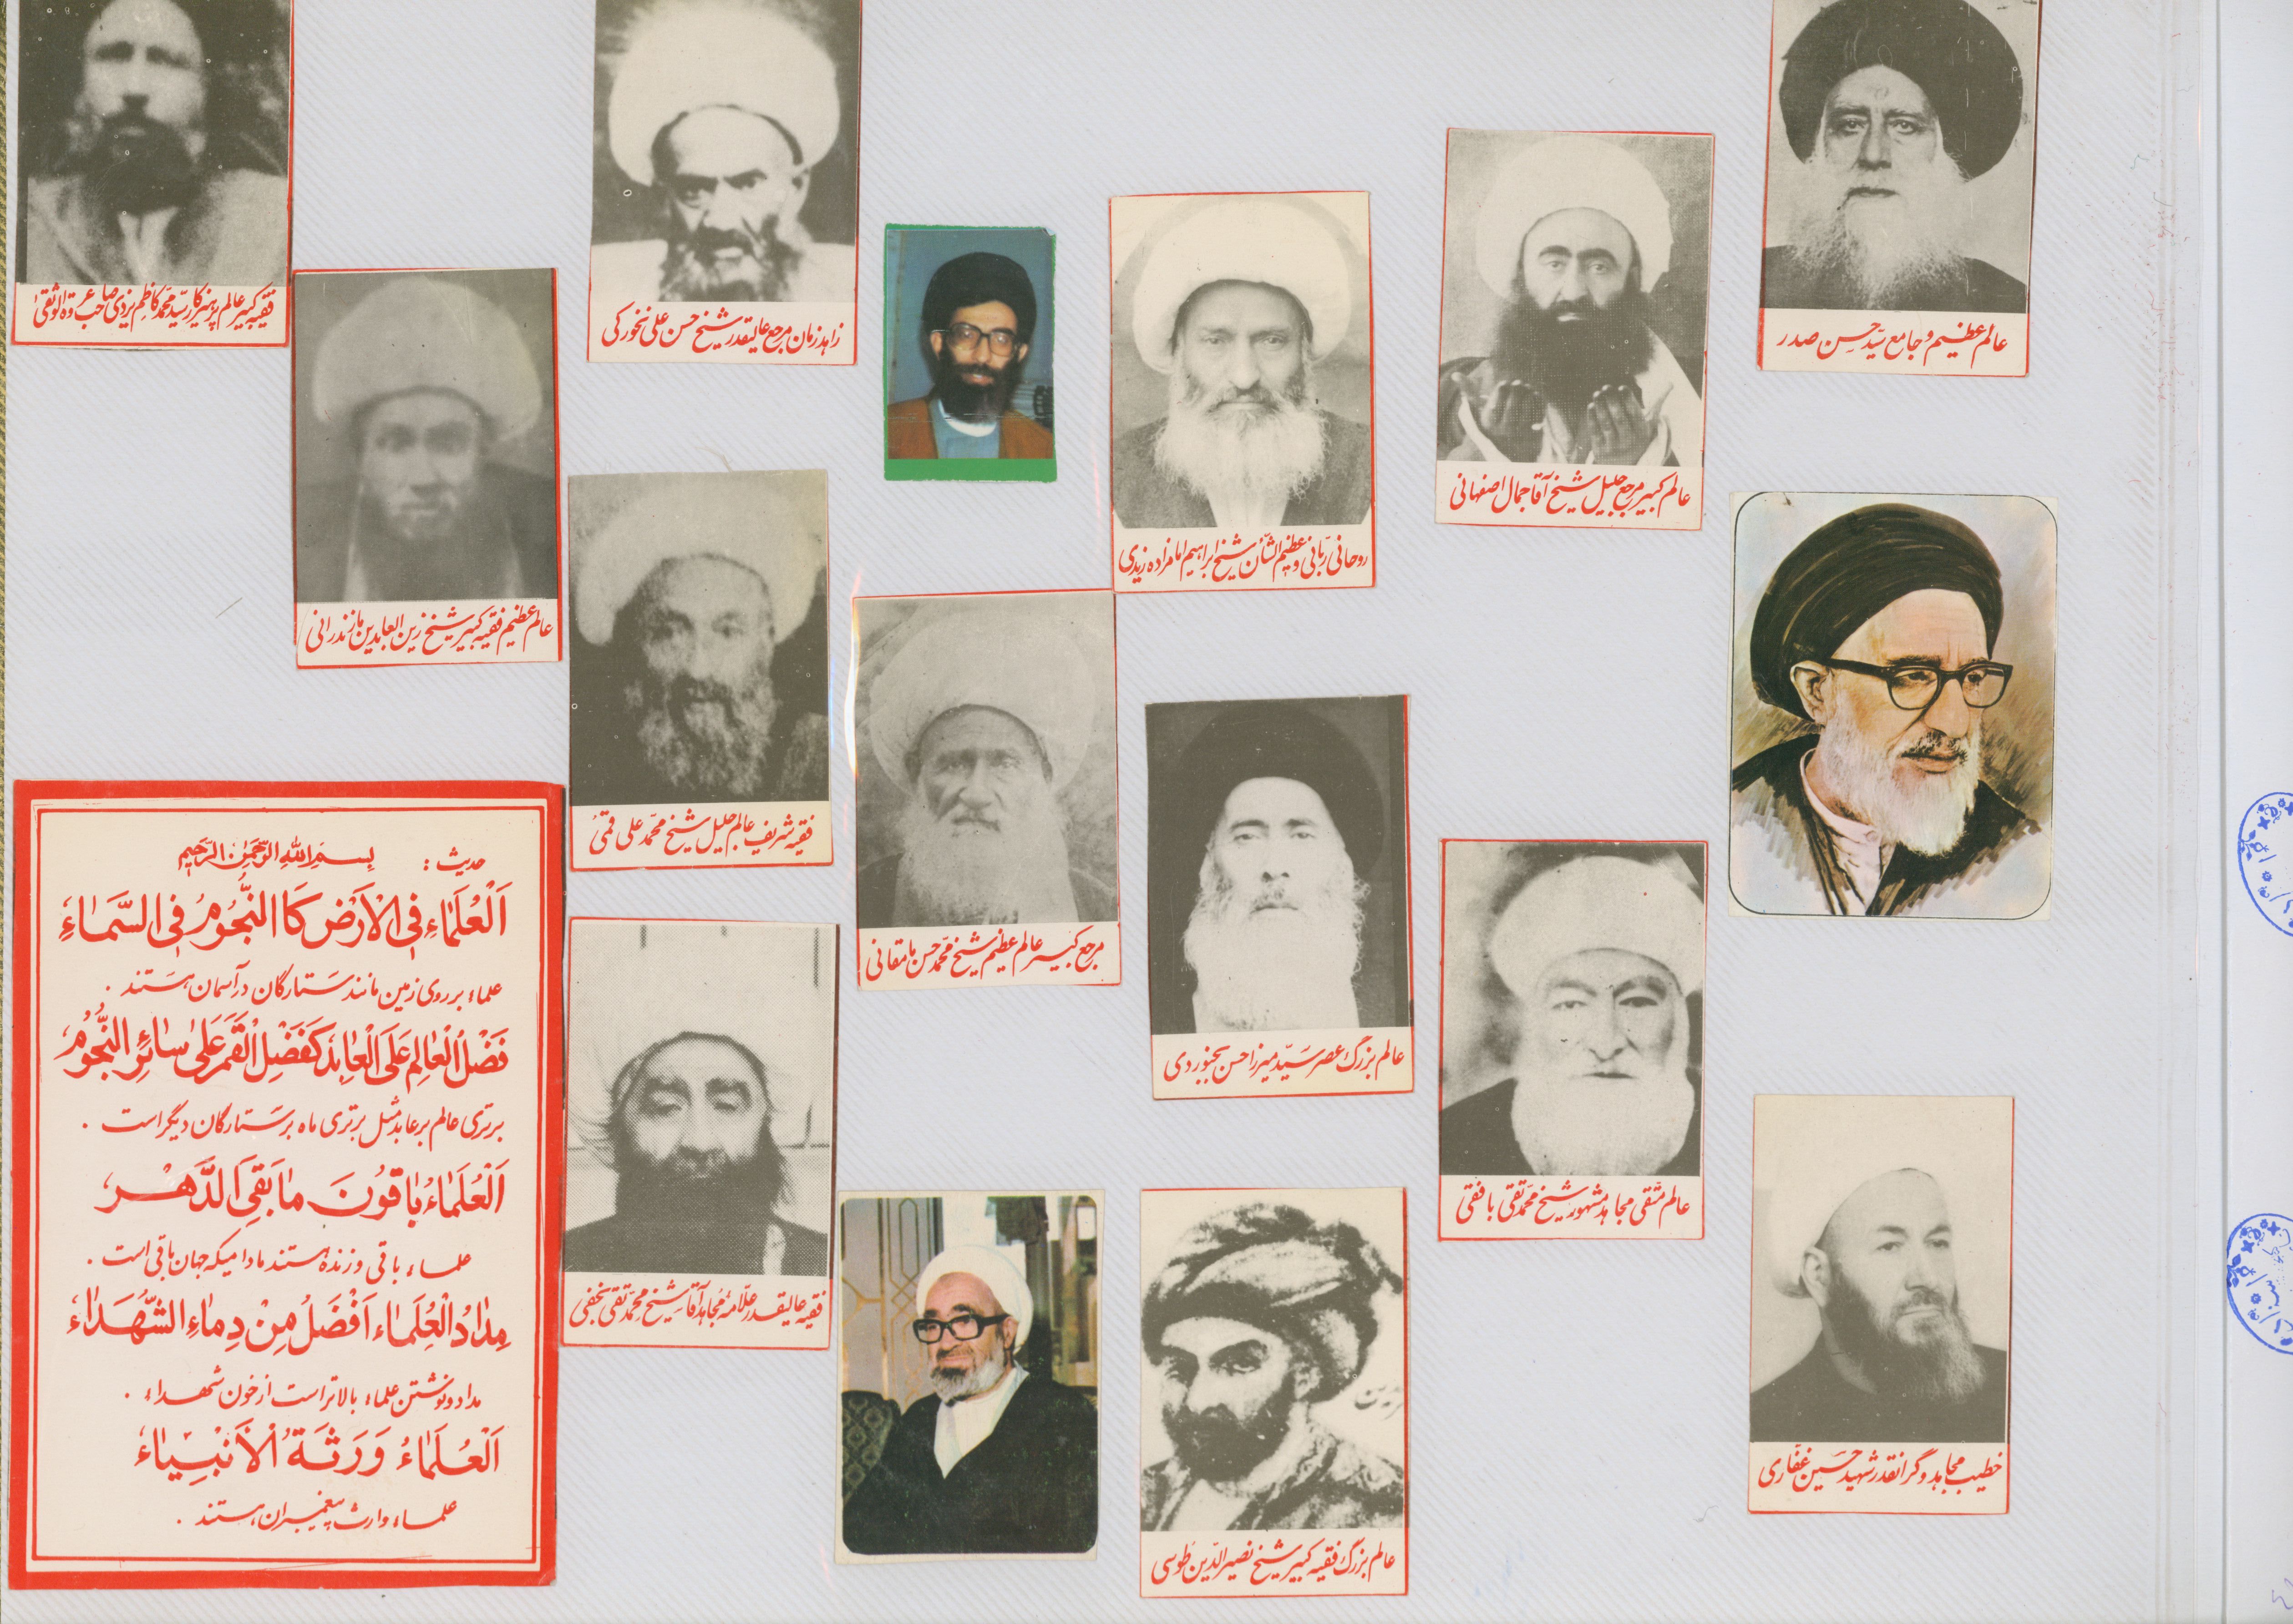 فقیه کبیر عالم پرهیزکار سید محمد کاظم یزدی صاحب عروة الوثقی
زاهد زمان مرجع عالیقدر شیخ حسن علی نخودکی
عالم عظیم و جامع سید حسن صدر
عالم کبیر مرجع جلیل شیخ آقا جمال اصفهانی
روحانی ربانی و عظیم الشأن شیخ ابراهیم امامزاده زیدی
عالم عظیم فقیه کبیر شیخ زین العابدین مازندرانی
فقیه شریف عالم جلیل شیخ محمد علی قمی
مرجع کبیر عالم عظیم شیخ محمد حسن مامقانی
عالم بزرگ عصر سید میرزا حسن بجنوردی
عالم متقی مجاهد مشهور شیخ محمد تقی بافقی
فقیه عالیقدر علامه مجاهد آقا شیخ محمد تقی نجفی
خطیب مجاهد و گرانقدر شهید حسین غفاری
عالم بزرگ فقیه کبیر شیخ نصیر الدین طوسی
حدیث : بِسمِ اللهِ الرَّحمٰنِ الرَّحیمِ
اَلْعُلَمٰاءِ فِی الْاَرْضِ کَا النُّجُومُ فِی السَّمٰاءِ
علماء بر روی زمین مانند ستارگان در آسمان هستند .
فَضْلُ الْعٰالِمِ عَلَی الْعٰابِدِ کَفَضْلِ الْقَمَرِ عَلیٰ سٰائِرِ النُّجُومُ
برتری عالم بر عابد مثل برتری ماه بر ستارگان دیگر است .
اَلْعُلَمٰاءُ بٰاقُونَ مٰا بَقِیَ الدَّهْر
علماء باقی و زنده هستند مادامیکه جهان باقی است .
مِدٰادُ الْعُلَمٰاء اَفْضَلُ مِنْ دِمٰاءِ الشُّهَدٰاءُ
مداد و نوشتن علماء بالاتر است از خون شهداء .
اَلْعُلَمٰاءُ وَرَثَةُ الْاَنْبِیٰاءُ
علماء وارث پیغمبران هستند .